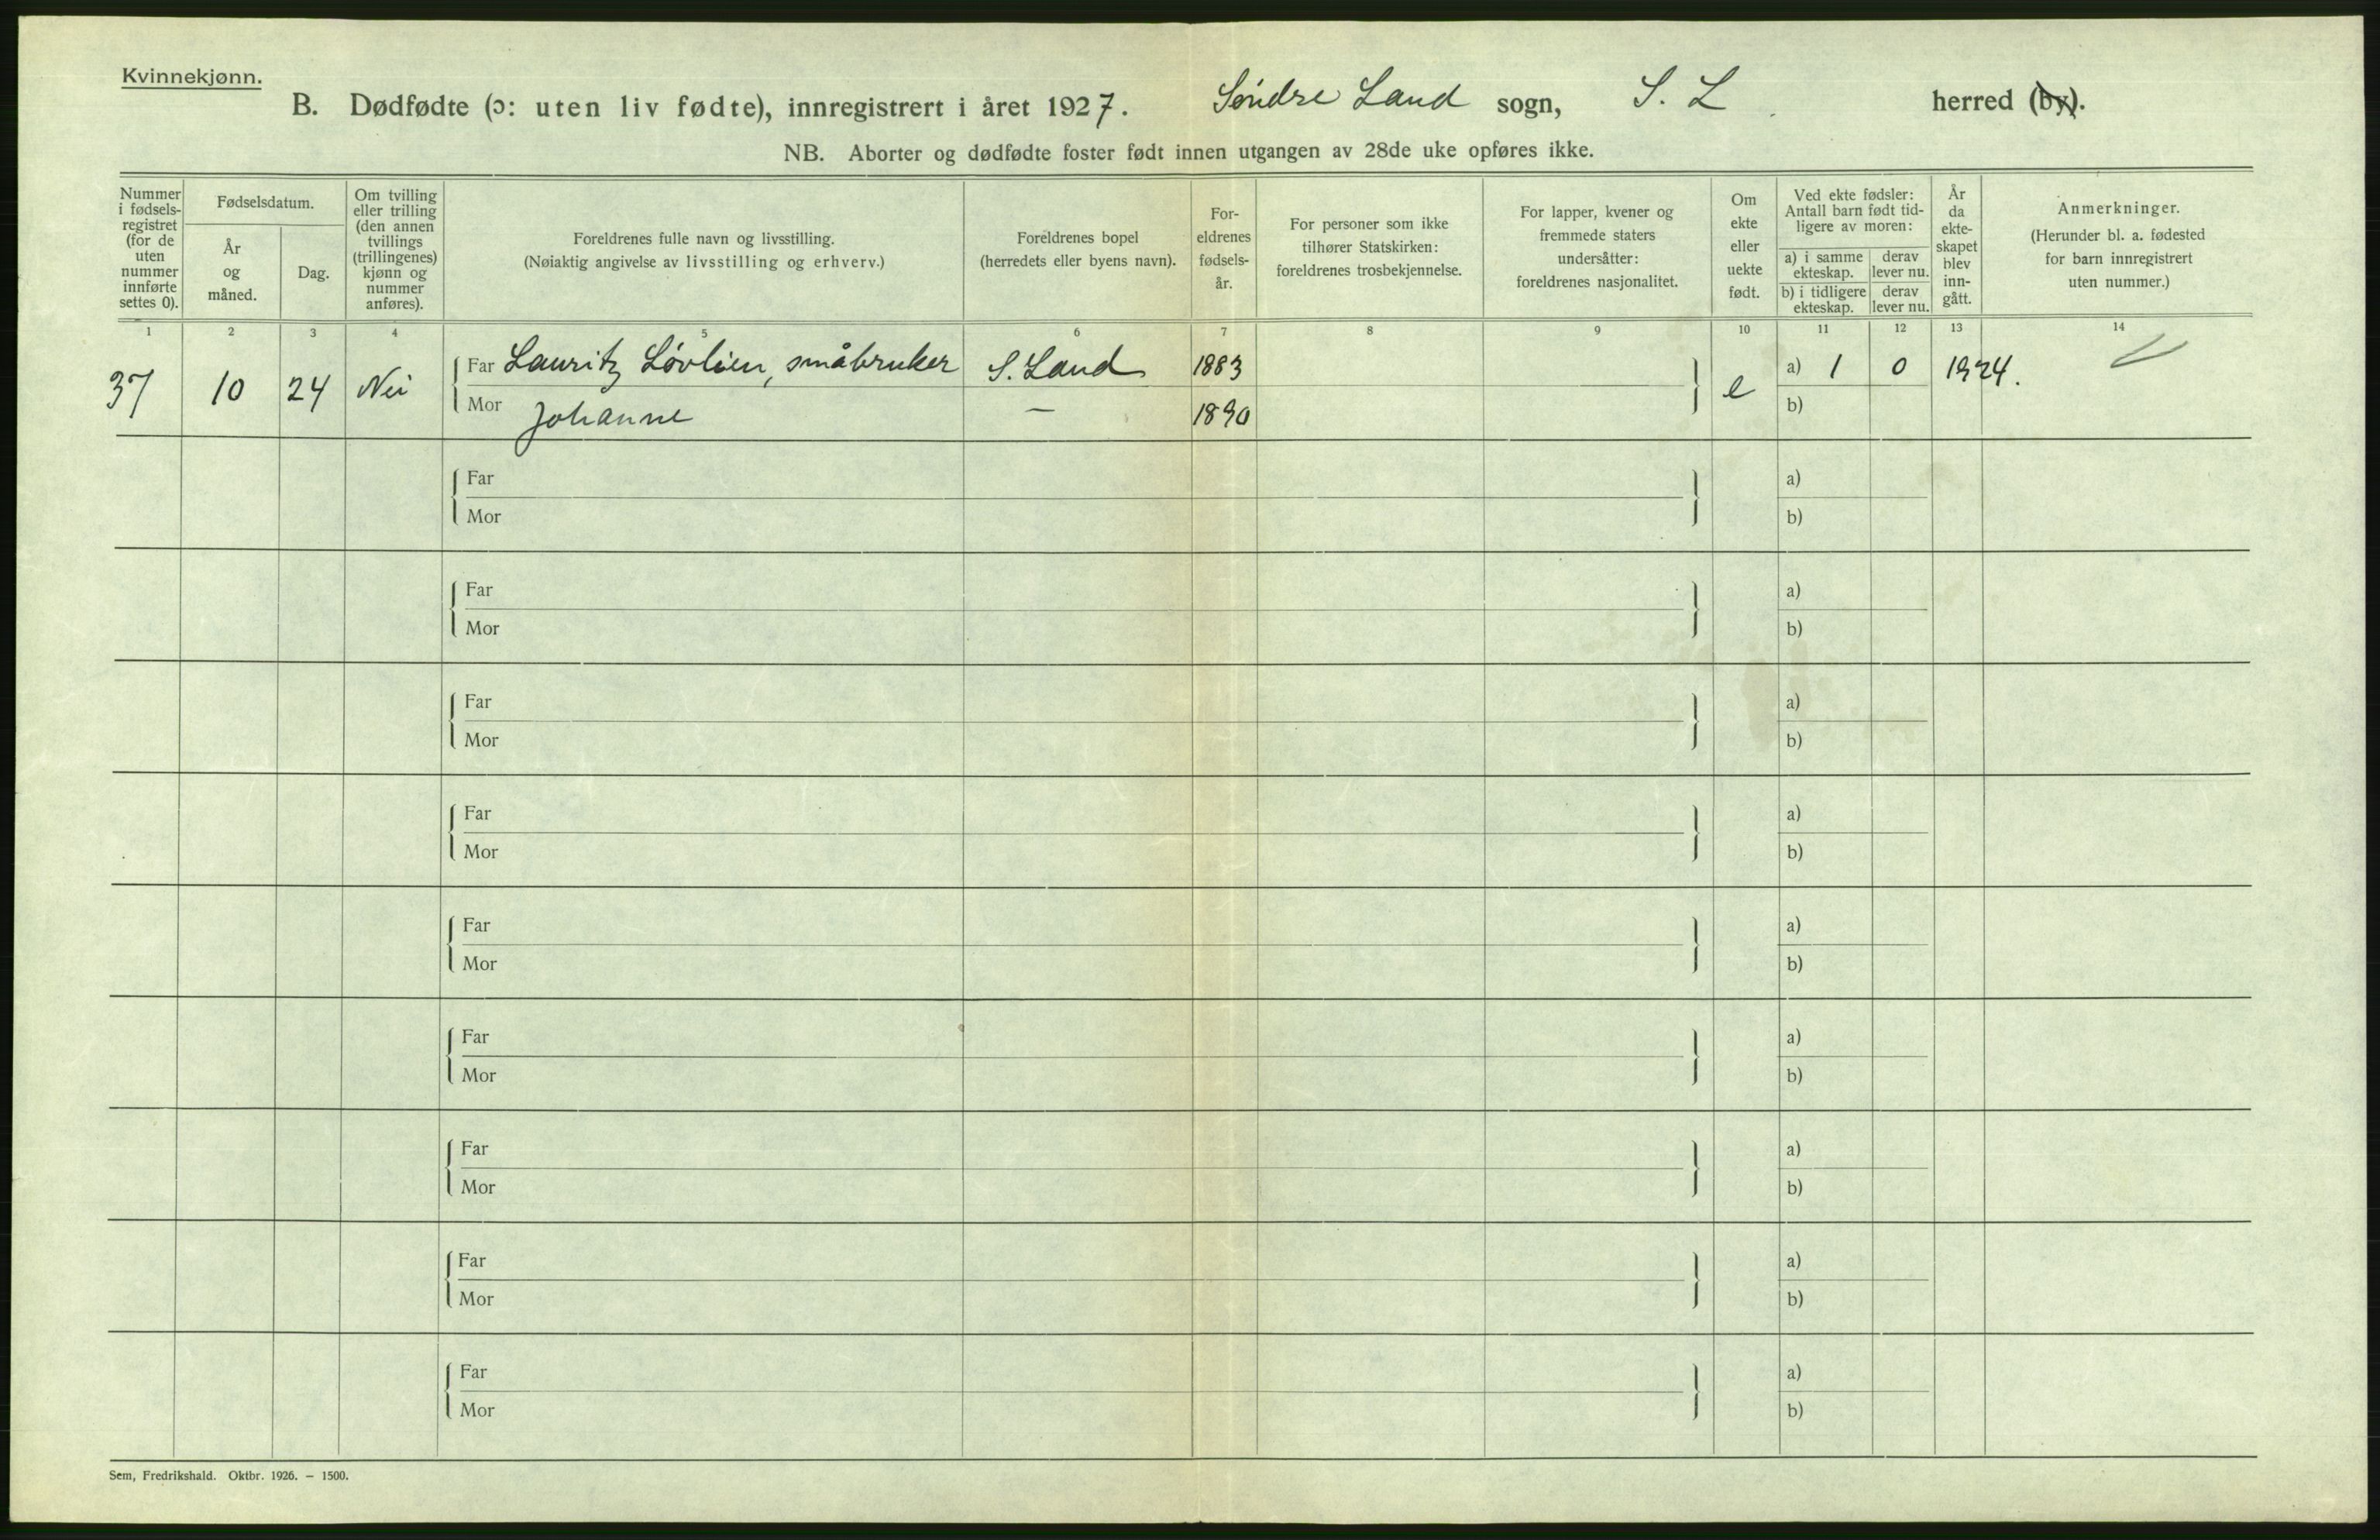 Kvinnekjønn.
B. Dødfødte (ɔ: uten liv fødte), innregistrert i året 1927. Søndre Land sogn, S. L. herred (by).
NB. Aborter og dødfødte foster født innen utgangen av 28de uke opføres ikke.
Nummer
i fødsels-
registret
(for de
uten
nummer
innførte
settes 0).
Fødselsdatum.
År
og
måned.
Dag.
Om tvilling
eller trilling
(den annen
tvillings
(trillingenes)
kjønn og
nummer
anføres).
Foreldrenes fulle navn og livsstilling.
(Nøiaktig angivelse av livsstilling og erhverv.)
Foreldrenes bopel
(herredets eller byens navn).
For-
eldrenes
fødsels-
år.
For personer som ikke
tilhører Statskirken:
foreldrenes trosbekjennelse.
For lapper, kvener og
fremmede staters
undersåtter:
foreldrenes nasjonalitet.
Om
ekte
eller
uekte
født.
Ved ekte fødsler:
Antall barn født tid-
ligere av moren:
a) i samme
ekteskap.
derav
lever nu.
b) i tidligere
ekteskap.
derav
lever nu.
År
da
ekte-
skapet
blev
inn-
gått.
Anmerkninger.
(Herunder bl. a. fødested
for barn innregistrert
uten nummer.)
1 2 3 4 5 6 7 8 9 10 11 12 13 14
37 10 24 Nei Far Lauritz Løvlien, småbruker S. Land 1883 e a) 1 0 1924.
Mor Johanne — 1890 b)
Far a)
Mor b)
Far a)
Mor b)
Far a)
Mor b)
Far a)
Mor b)
Far a)
Mor b)
Far a)
Mor b)
Far a)
Mor b)
Far a)
Mor b)
Far a)
Mor b)
Sem, Fredrikshald. Oktbr. 1926. — 1500.